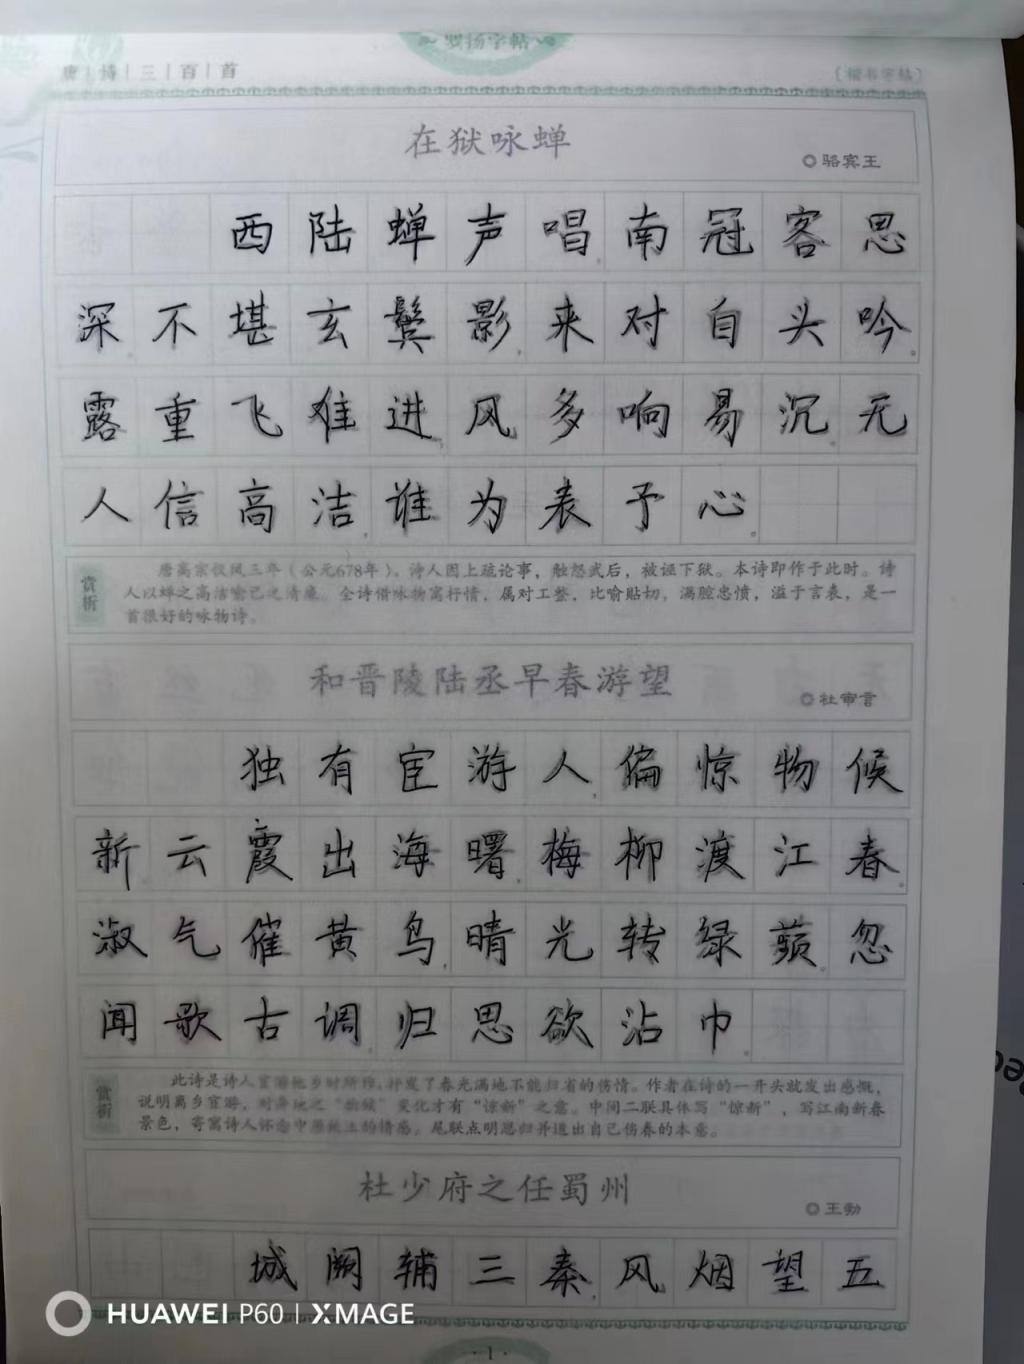 罗扬字帖
唐 诗 三 百 首
〔楷书字帖〕
在狱咏蝉
◎骆宾王
西陆蝉声唱。南冠客思
深不堪玄鬓影。来对白头吟。
露重飞难进。风多响易沉。无
人信高洁。谁为表予心。
赏析
唐高宗仪凤三年（公元678年），诗人因上疏论事，触怒武后，被诬下狱。本诗即作于此时。诗
人以蝉之高洁喻己之清廉。全诗借咏物寓抒情，属对工整，比喻贴切，满腔忠愤，溢于言表，是一
首很好的咏物诗。
和晋陵陆丞早春游望
◎杜审言
独有宦游人。偏惊物候
新。云霞出海曙。梅柳渡江春。
淑气催黄鸟。晴光转绿蘋。忽
闻歌古调。归思欲沾巾。
赏析
此诗是诗人宦游他乡时所作，抒发了春光满地不能归省的伤情。作者在诗的一开头就发出感慨，
说明离乡宦游，对异地之“物候”变化才有“惊新”之意。中间二联具体写“惊新”，写江南新春
景色，寄寓诗人怀念中原故土的情感。尾联点明思归并道出自己伤春的本意。
杜少府之任蜀州
◎王勃
城阙辅三秦。风烟望五
HUAWEI P60 | XMAGE
·1·